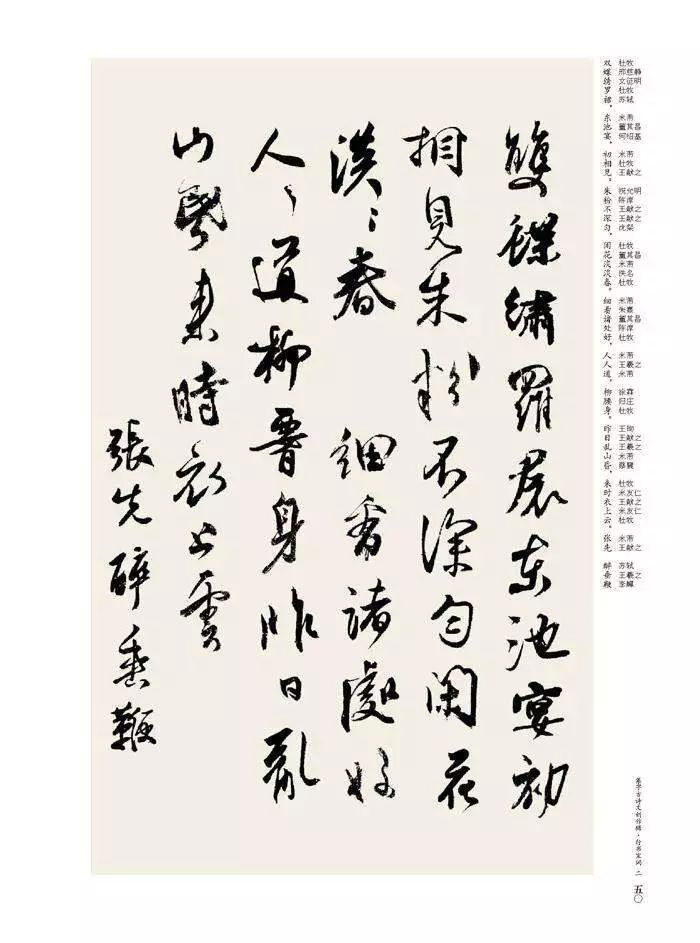 雙蝶繡羅裙東池宴初
相見朱粉不深勻閑花
淡〻春 細看諸處好
人〻道柳腰身昨日亂
山昏來時衣上雲
張先醉垂鞭
双 杜牧
蝶 邢慈静
绣 文征明
罗 杜牧
裙， 苏轼
东 米芾
池 董其昌
宴， 何绍基
初 米芾
相 杜牧
见。 王献之
朱 祝允明
粉 陈淳
不 王献之
深 王献之
匀， 沈粲
闲 杜牧
花 董其昌
淡 米芾
淡 佚名
春。 杜牧
细 米芾
看 朱熹
诸 董其昌
处 陈淳
好， 杜牧
人 米芾
人 王羲之
道， 米芾
柳 徐霖
腰 归庄
身。 杜牧
昨 王珣
日 王献之
乱 王羲之
山 米芾
昏， 蔡襄
来 杜牧
时 米友仁
衣 王献之
上 米友仁
云。 杜牧
张 米芾
先 王献之
醉 苏轼
垂 王羲之
鞭
行书宋词 二 五〇